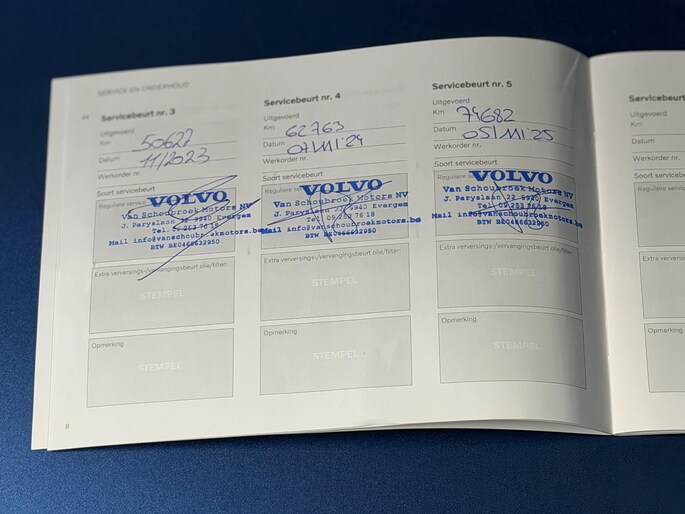 SERVICE EN ONDERHOUD
Servicebeurt nr. 3
Uitgevoerd
Km 50627
Datum 11/2023
Werkorder nr.
Soort servicebeurt
Reguliere
VOLVO
Van Schoubroek Motors NV
J. Paryslaan 22 9940 Evergem
Tel. 09 253 76 18
Mail info@vanschoubroekmotors.be
BTW BE0466632950
Extra verversings-/vervangingsbeurt olie/filter:
STEMPEL
Opmerking
STEMPEL
Servicebeurt nr. 4
Uitgevoerd
Km 62763
Datum 07/11/24
Werkorder nr.
Soort servicebeurt
Reguliere
VOLVO
Van Schoubroek Motors NV
J. Paryslaan 22 9940 Evergem
Tel. 09 253 76 18
Mail info@vanschoubroekmotors.be
BTW BE0466632950
Extra verversings-/vervangingsbeurt olie/filter:
STEMPEL
Opmerking
STEMPEL
Servicebeurt nr. 5
Uitgevoerd
Km 74682
Datum 05/11/25
Werkorder nr.
Soort servicebeurt
Reguliere
VOLVO
Van Schoubroek Motors NV
J. Paryslaan 22 9940 Evergem
Tel. 09 253 76 18
Mail info@vanschoubroekmotors.be
BTW BE0466632950
Extra verversings-/vervangingsbeurt olie/filter:
STEMPEL
Opmerking
STEMPEL
8
Servicebeurt
Uitgevoerd
Km
Datum
Werkorder nr.
Soort service
Reguliere
Extra verversing
Opmerking